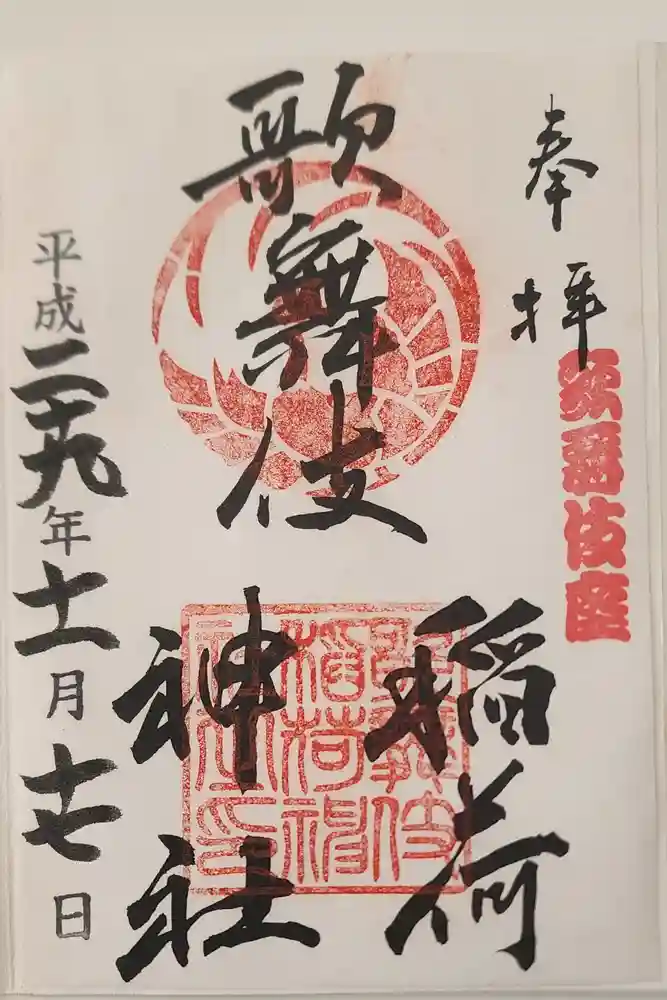 奉拝
歌舞伎座
歌舞伎
稲荷
神社
歌舞伎
稲荷神
社之印
平成二十九年十一月十七日